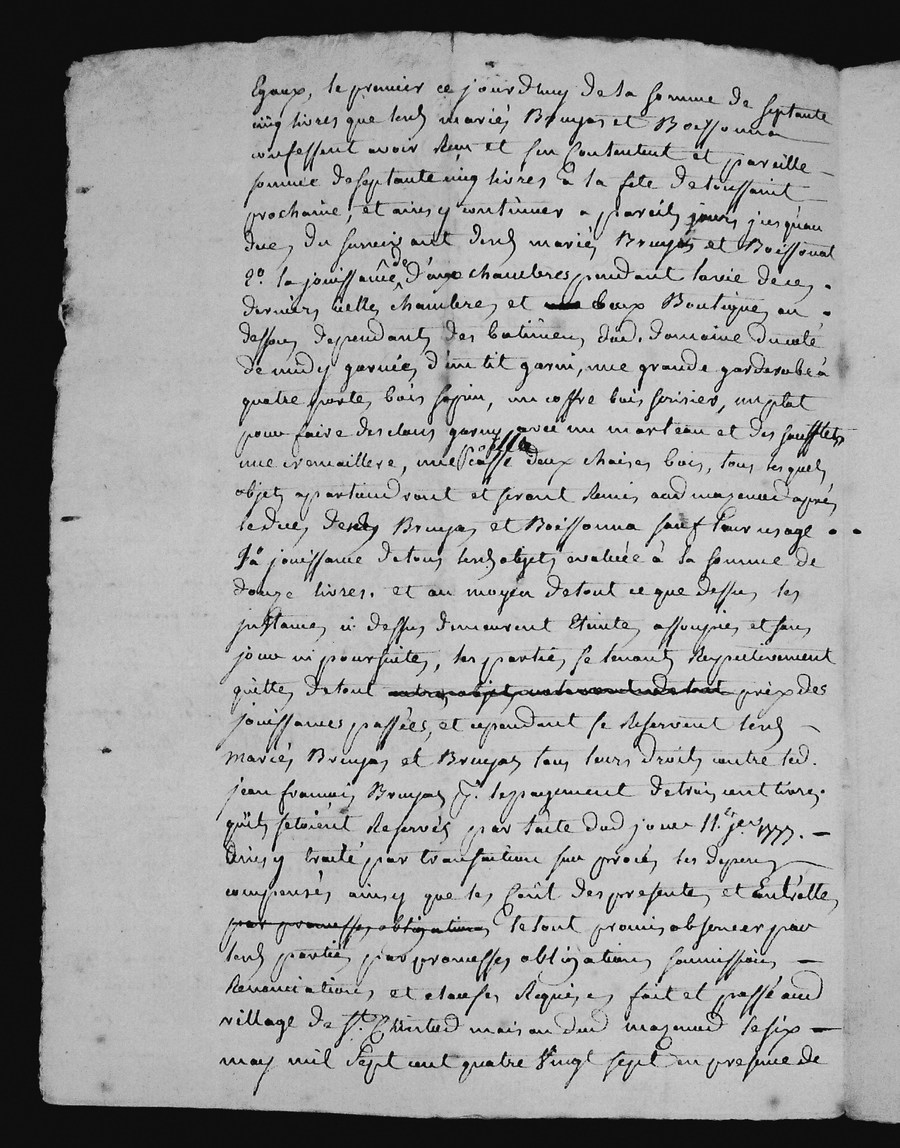 Egaux, le premier ce jourdhuy de la somme de septante
cinq livres que lesd mariés Bruyas et Boissonna
confessent avoir Reçu et sen Contentent et pareille
somme de septante cinq livres à la fete de toussaint
prochaine, et ainsy continuer a pareils jours jusqu'au
duc, du survivant desd mariés Bruyas et Boissonat
2.o la jouissance de chambres pendant la vie de ces
derniers icelles chambres et Boutiques au
dessous dependants des batimens dud. domaine du coté
de midy garnies d'un lit garni, une grande garderobe à
quatre portes bois sapin, un coffre bois serisier,
pour faire des clous garny avec un marteau et des soufflets
une cremaillere, une deux chaises bois, tous lesquels
objets apartiendront et seront Remis aud mazenod après
le duc, desd Bruyas et Boissonna sauf l'eur usage
La jouissance de tous lesd objets evaluée à la somme de
douze livres. et au moyen de tout ce que dessus les
jnstances ci dessus demeurent Eteintes assoupies et sans
jour ni poursuites, les parties se tenant Respectivement
quittes de tout prix des
jouissances passées, et cependant se Reservent lesd
mariés Bruyas et Bruyas tous leurs droits contre led.
jean francois Bruyas p.r le payement de trois cent livres
qu'ils s'etoient Reservés par l'acte dud jour 11.e jer 1777.
Ainsy traité par transaction sur procès les depens
compensés ainsy que les Coût des presentes et Entr'elles
par promesses obligations Le tout promis observer par
lesd parties par promesses obligations soumissions
Renonciations et clauses Requises fait et passé aud
village de St. maison dud mazenod le six
may mil Sept cent quatre Vingt sept en presence de